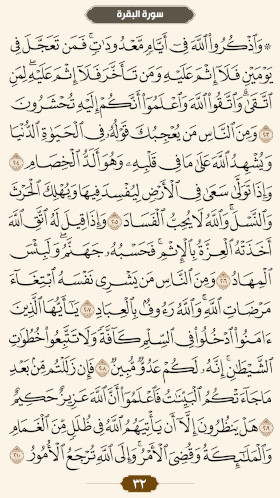 سورة البقرة
۞ وَاذْكُرُوا اللَّهَ فِي أَيَّامٍ مَعْدُودَاتٍ فَمَنْ تَعَجَّلَ فِي
يَوْمَيْنِ فَلَا إِثْمَ عَلَيْهِ وَمَنْ تَأَخَّرَ فَلَا إِثْمَ عَلَيْهِ لِمَنِ
اتَّقَى وَاتَّقُوا اللَّهَ وَاعْلَمُوا أَنَّكُمْ إِلَيْهِ تُحْشَرُونَ
٢٠٣ وَمِنَ النَّاسِ مَنْ يُعْجِبُكَ قَوْلُهُ فِي الْحَيَاةِ الدُّنْيَا
وَيُشْهِدُ اللَّهَ عَلَى مَا فِي قَلْبِهِ وَهُوَ أَلَدُّ الْخِصَامِ ٢٠٤
وَإِذَا تَوَلَّى سَعَى فِي الْأَرْضِ لِيُفْسِدَ فِيهَا وَيُهْلِكَ الْحَرْثَ
وَالنَّسْلَ وَاللَّهُ لَا يُحِبُّ الْفَسَادَ ٢٠٥ وَإِذَا قِيلَ لَهُ اتَّقِ اللَّهَ
أَخَذَتْهُ الْعِزَّةُ بِالْإِثْمِ فَحَسْبُهُ جَهَنَّمُ وَلَبِئْسَ
الْمِهَادُ ٢٠٦ وَمِنَ النَّاسِ مَنْ يَشْرِي نَفْسَهُ ابْتِغَاءَ
مَرْضَاتِ اللَّهِ وَاللَّهُ رَءُوفٌ بِالْعِبَادِ ٢٠٧ يَا أَيُّهَا الَّذِينَ
ءَامَنُوا ادْخُلُوا فِي السِّلْمِ كَافَّةً وَلَا تَتَّبِعُوا خُطُوَاتِ
الشَّيْطَانِ إِنَّهُ لَكُمْ عَدُوٌّ مُبِينٌ ٢٠٨ فَإِنْ زَلَلْتُمْ مِنْ بَعْدِ
مَا جَاءَتْكُمُ الْبَيِّنَاتُ فَاعْلَمُوا أَنَّ اللَّهَ عَزِيزٌ حَكِيمٌ
٢٠٩ هَلْ يَنْظُرُونَ إِلَّا أَنْ يَأْتِيَهُمُ اللَّهُ فِي ظُلَلٍ مِنَ الْغَمَامِ
وَالْمَلَائِكَةُ وَقُضِيَ الْأَمْرُ وَإِلَى اللَّهِ تُرْجَعُ الْأُمُورُ ٢١٠
٣٢